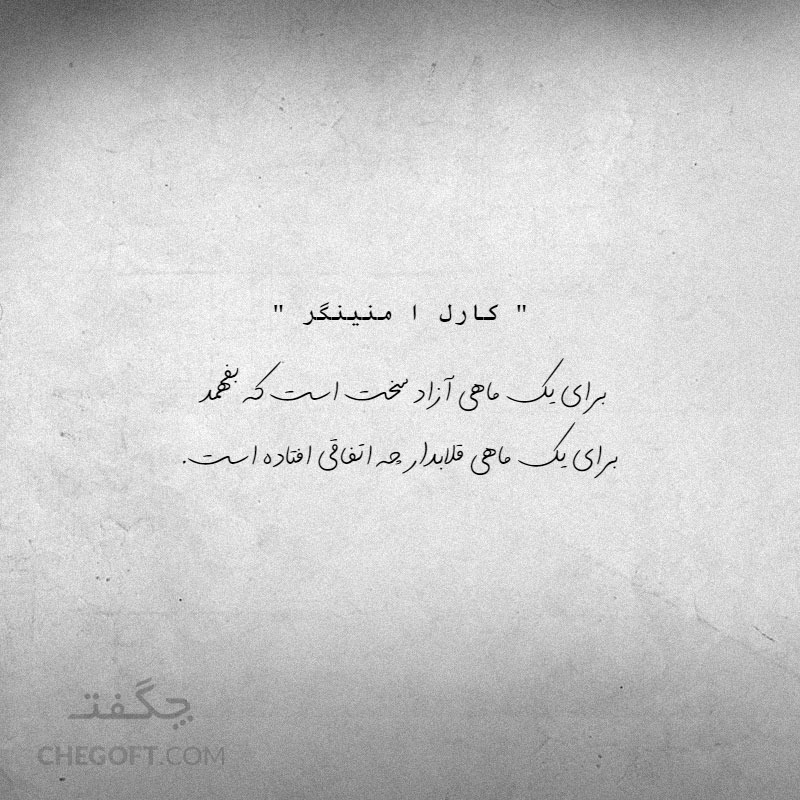 " کارل ا منینگر "
برای یک ماهی آزاد سخت است که بفهمد
برای یک ماهی قلابدار چه اتفاقی افتاده است.
چگفت
CHEGOFT.COM